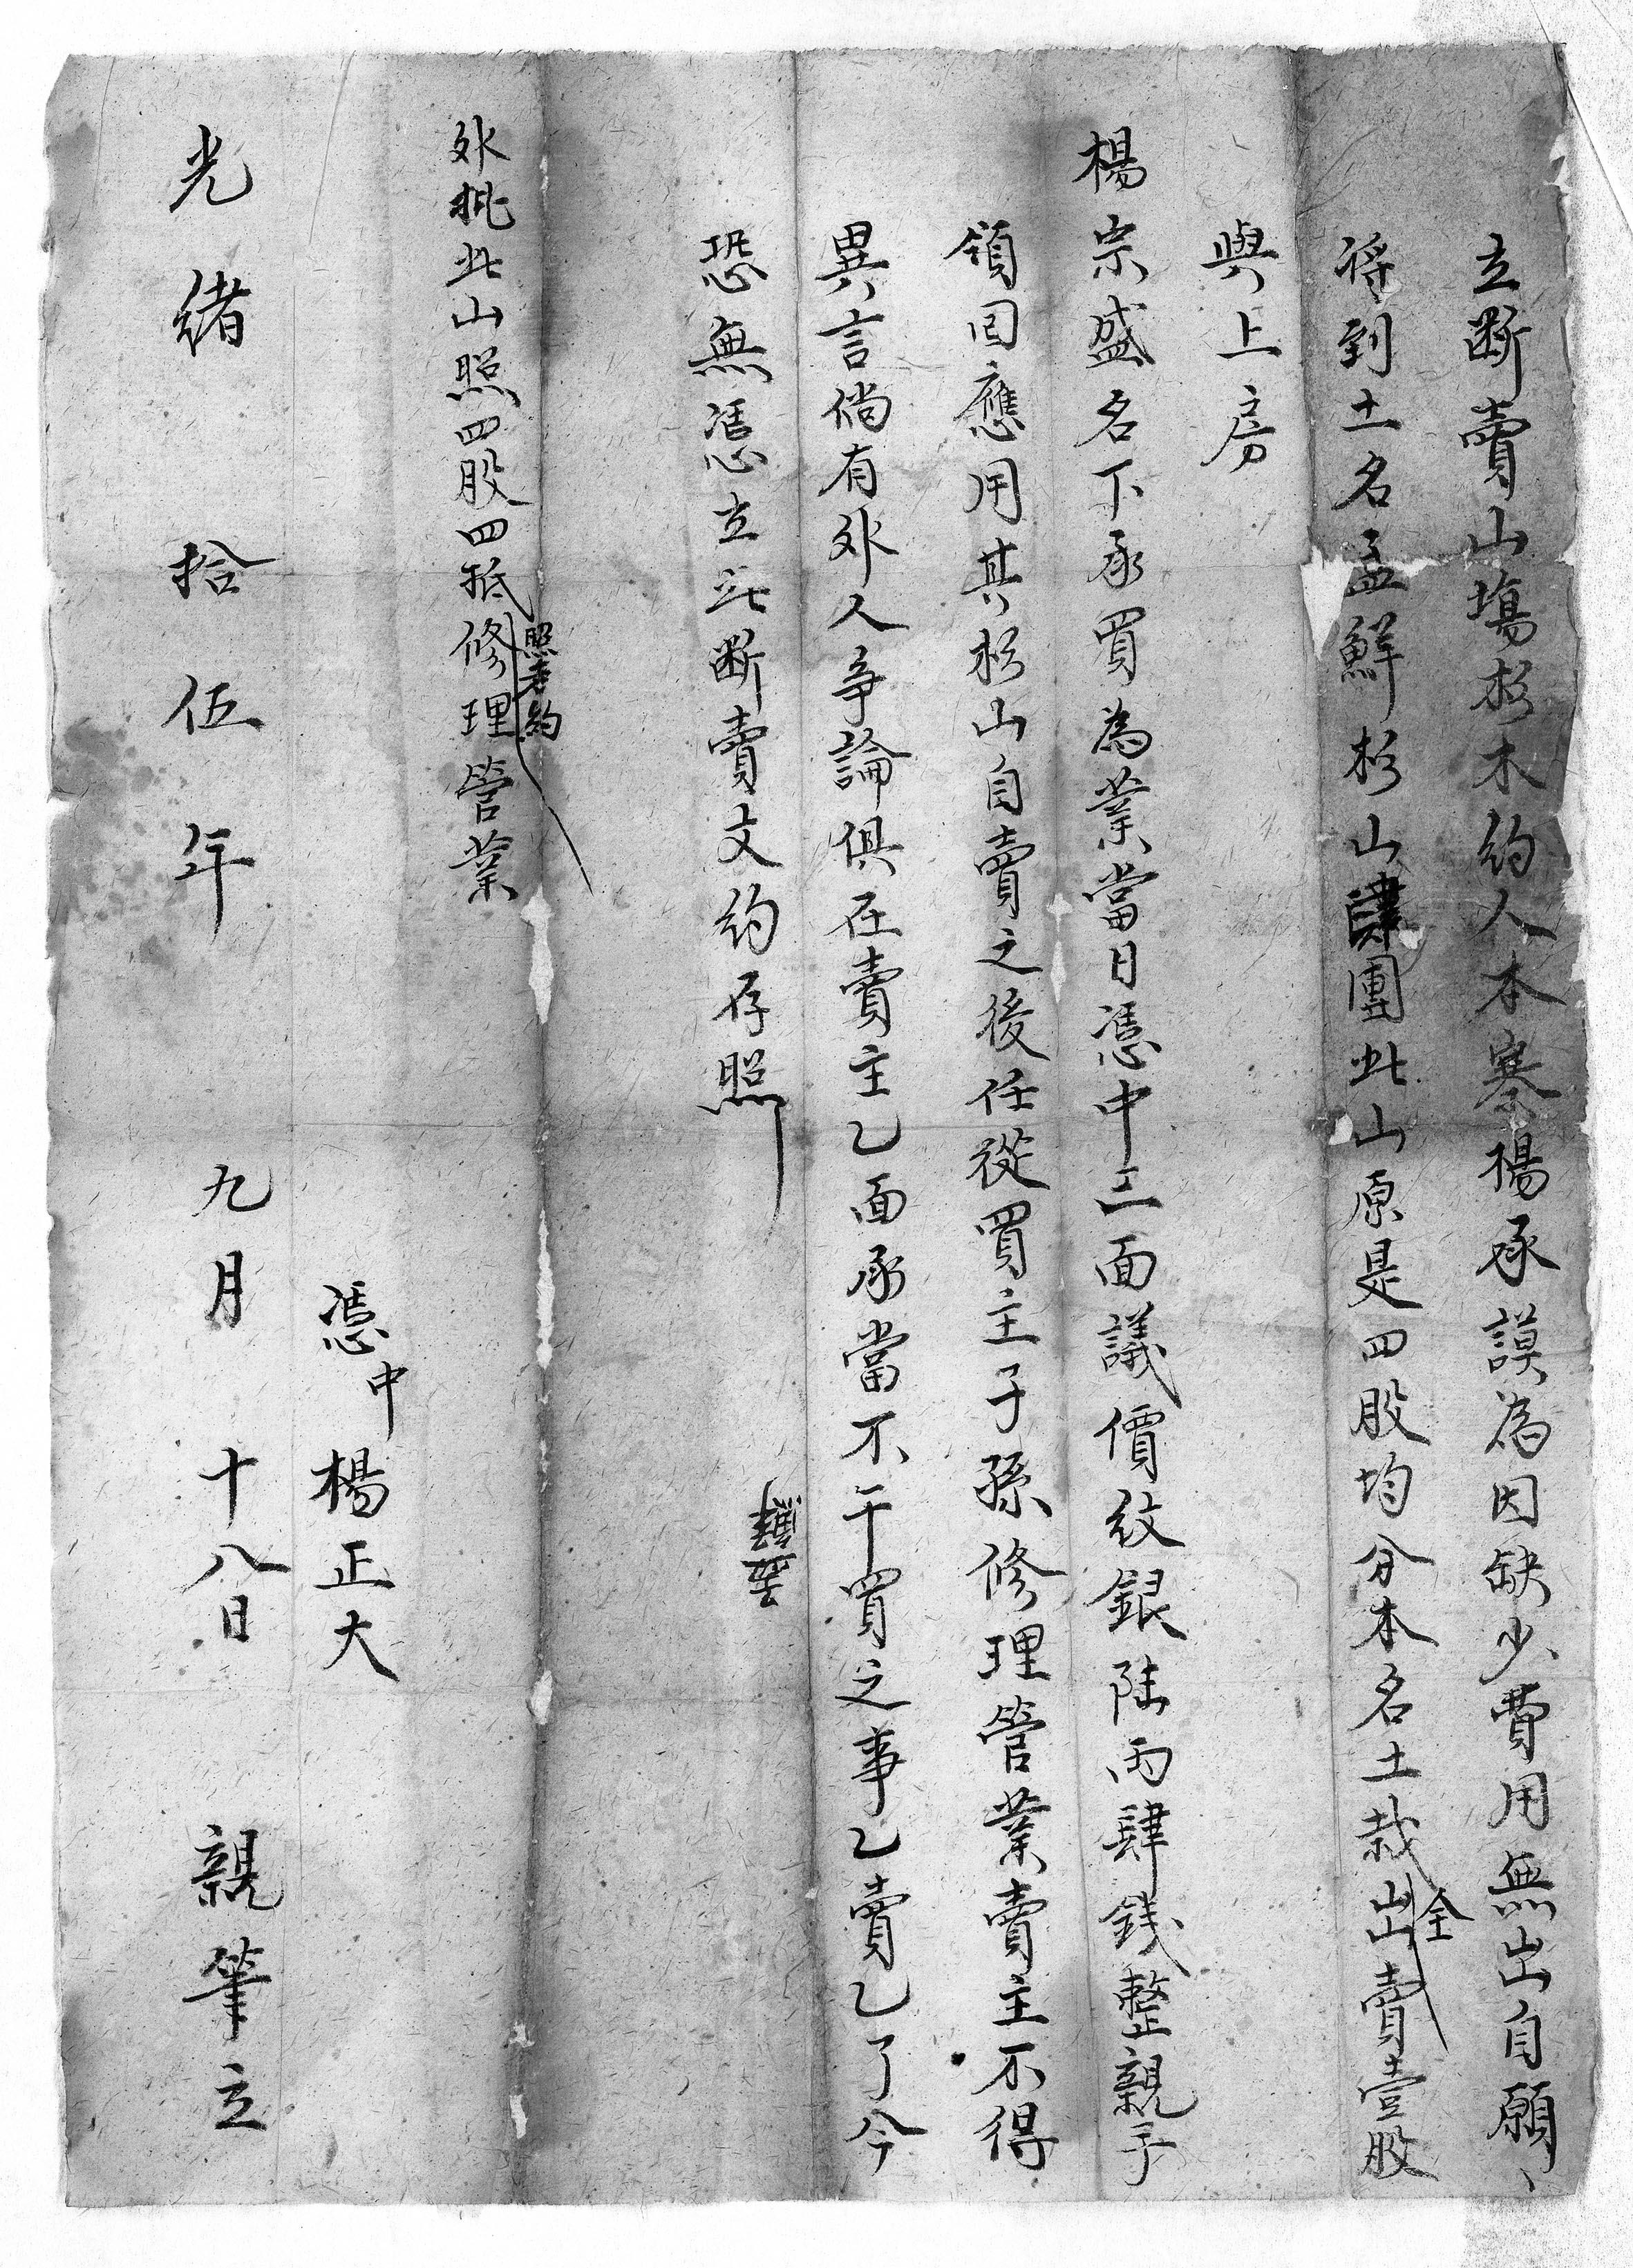 立断賣山塲杉木約人本寨楊承謨為因缺少費用無出自願、
將到土名孟鮮杉山肆團此山原是四股均分本名土栽全出賣壹股
與上房
楊宗盛名下承買為業當日憑中三面議價紋銀陸両肆錢整親手
領囘應用其杉山自賣之後任從買主子孫修理管業賣主不得
異言倘有外人爭論俱在賣主乙面承當不干買之事乙賣乙了今
恐無憑立此断賣文約存照
外批此山照四股四抵照老約修理管業
憑中 楊正大
光緒拾伍年九月十八日 親筆立